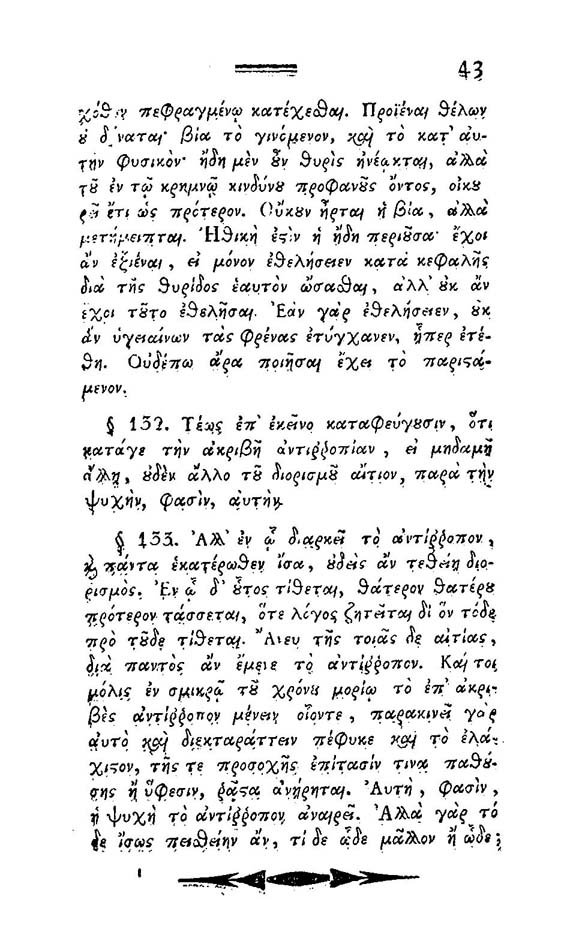 43
χόθεν πεφραγμένῳ κατέχεσθαι. Προϊέναι θέλων
οὐ δύναται· βία τὸ γινόμενον, καὶ τὸ κατ' αὐ-
τὴν φυσικόν· ἤδη μὲν οὖν θυρὶς ἠνέῳκται, ἀλλὰ
τοῦ ἐν τῷ κρημνῷ κινδύνου προφανοῦς ὄντος, οἰκου
ρεῖ ἔτι ὡς πρότερον. Οὔκουν ἦρται ἡ βία, ἀλλὰ
μετήμειπται. Ἠθικὴ ἐστὶν ἡ ἤδη περιοῦσα· ἔχοι
ἂν ἐξιέναι, εἰ μόνον ἐθελήσειεν κατὰ κεφαλῆς
διὰ τῆς θυρίδος ἑαυτὸν ὦσασθαι, ἀλλ' οὐκ ἂν
ἔχοι τοῦτο ἐθελῆσαι. Ἐὰν γὰρ ἐθελήσειεν, οὐκ
ἂν ὑγειαίνων τὰς φρένας ἐτύγχανεν, ᾗπερ ἐτέ-
θη. Οὐδέπω ἄρα ποιῆσαι ἔχει τὸ παριστά-
μενον.
§ 132. Τέως ἐπ' ἐκεῖνο καταφεύγουσιν, ὅτι
κατάγε τὴν ἀκριβῆ ἀντιῤῥοπίαν, εἰ μηδαμῆ
ἄλλῃ, οὐδὲν ἄλλο τοῦ διορισμοῦ αἴτιον, παρὰ τὴν
ψυχὴν, φασὶν, αὐτήν.
§ 133. Ἀλλ' ἐν ᾧ διαρκεῖ τὸ ἀντίῤῥοπον,
καὶ πάντα ἑκατέρωθεν ἴσα, οὐδεὶς ἂν τεθείη διο-
ρισμός. Ἐν ᾧ δ' οὗτος τίθεται, θάτερον θατέρου
πρότερον τάσσεται, ὅτε λόγος ζητεῖται δι ὃν τόδε
πρὸ τοῦδε τίθεται. Ἄνευ τῆς τοιᾶς δε αἰτίας,
διὰ παντὸς ἂν ἔμειε τὸ ἀντίῤῥοπον. Καί τοι
μόλις ἐν σμικρῷ τοῦ χρόνου μορίῳ τὸ ἐπ' ἀκρι-
βὲς ἀντίῤῥοπον μένειν οἷοντε, παρακινεῖ γὰρ
αὐτὸ καὶ διεκταράττειν πέφυκε καὶ τὸ ἐλά-
χιστον, τῆς τε προσοχῆς ἐπίτασίν τινα παθού-
σης ἢ ὕφεσιν, ῥᾷστα ἀνῄρηται. Αὐτὴ, φασὶν,
ἡ ψυχὴ τὸ ἀντίῤῥοπον ἀναιρεῖ. Ἀλλὰ γὰρ τό
δε ἴσως πεισθείην ἂν, τί δε ᾧδε μᾶλλον ἢ ὧδε;